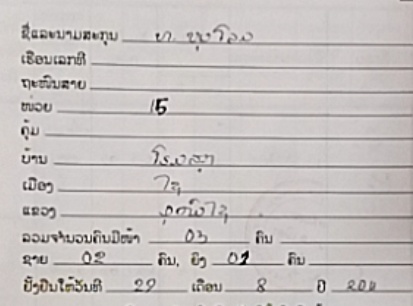 ຊື່ແລະນາມສະກຸນ ທ. ບຸນໂຮງ
ເຮືອນເລກທີ
ຖະໜົນສາຍ
ໜ່ວຍ 15
ຄຸ້ມ
ບ້ານ
ເມືອງ ໄຊ
ແຂວງ ອຸດົມໄຊ
ລວມຈຳນວນຄົນມີໜ້າ 03 ຄົນ
ຊາຍ 02 ຄົນ, ຍິງ 01 ຄົນ
ຢັ້ງຢືນໃຫ້ວັນທີ 29 ເດືອນ 8 ປີ